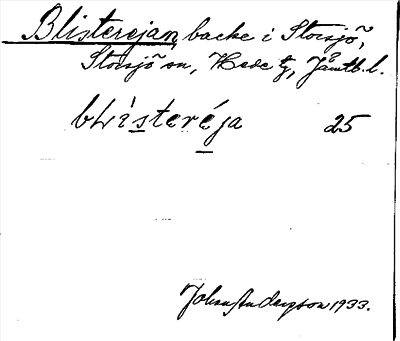 Blisterejan, backe i Storsjö,
Storsjö sn, Hede tg, Jämtl. l.
bLìsteréja 25
Johan Andersson 1933.